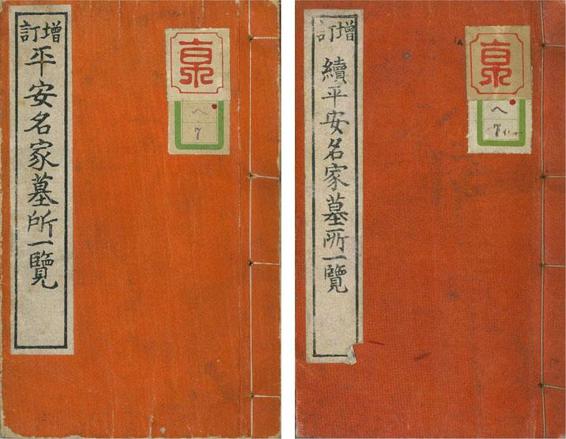 增訂
平安名家墓所一覽
へ
7
增訂
續平安名家墓所一覽
へ